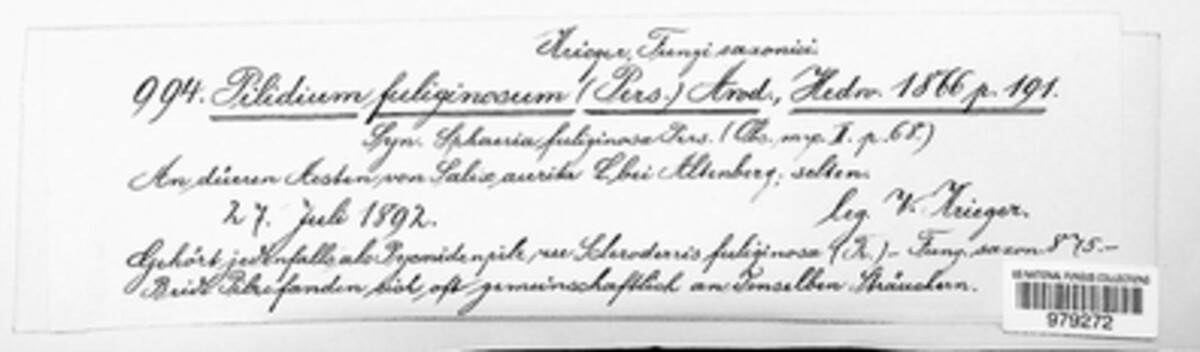 Krieger, Fungi saxonici.
994. Pilidium fuliginosum (Pers.) Awd., Hedw. 1866 p. 191.
Syn. Sphaeria fuliginosa Pers. (Obs. myc. II. p. 68.)
An dürren Aesten von Salix aurita L. bei Altenberg, selten.
27. Juli 1892. leg. W. Krieger.
Gehört jedenfalls als Pycnidenpilz zu Scleroderris fuliginosa (K.) – Fung. saxon 875.–
Beide Pilze fanden sich oft gemeinschaftlich an denselben Sträuchern.
US NATIONAL FUNGUS COLLECTIONS
979272